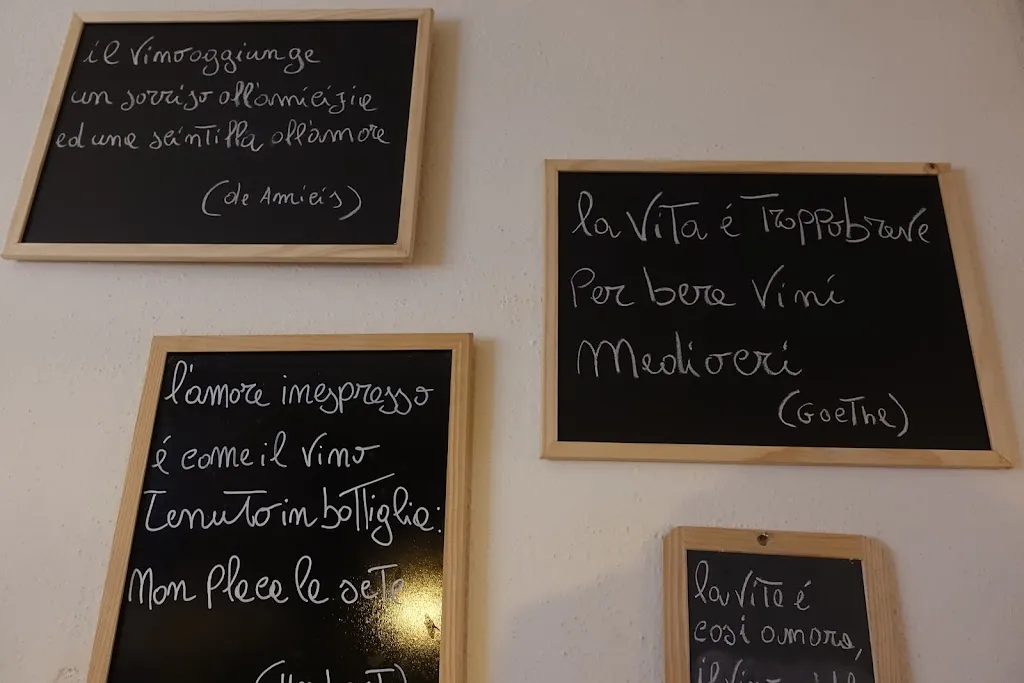 il vino aggiunge
un sorriso all'amicizia
ed una scintilla all'amore
(de Amicis)
la Vita é Troppo breve
Per bere Vini
Mediocri
(Goethe)
l'amore inespresso
é come il vino
Tenuto in bottiglia:
Non placa la sete
la Vita é
così amara,
il vino